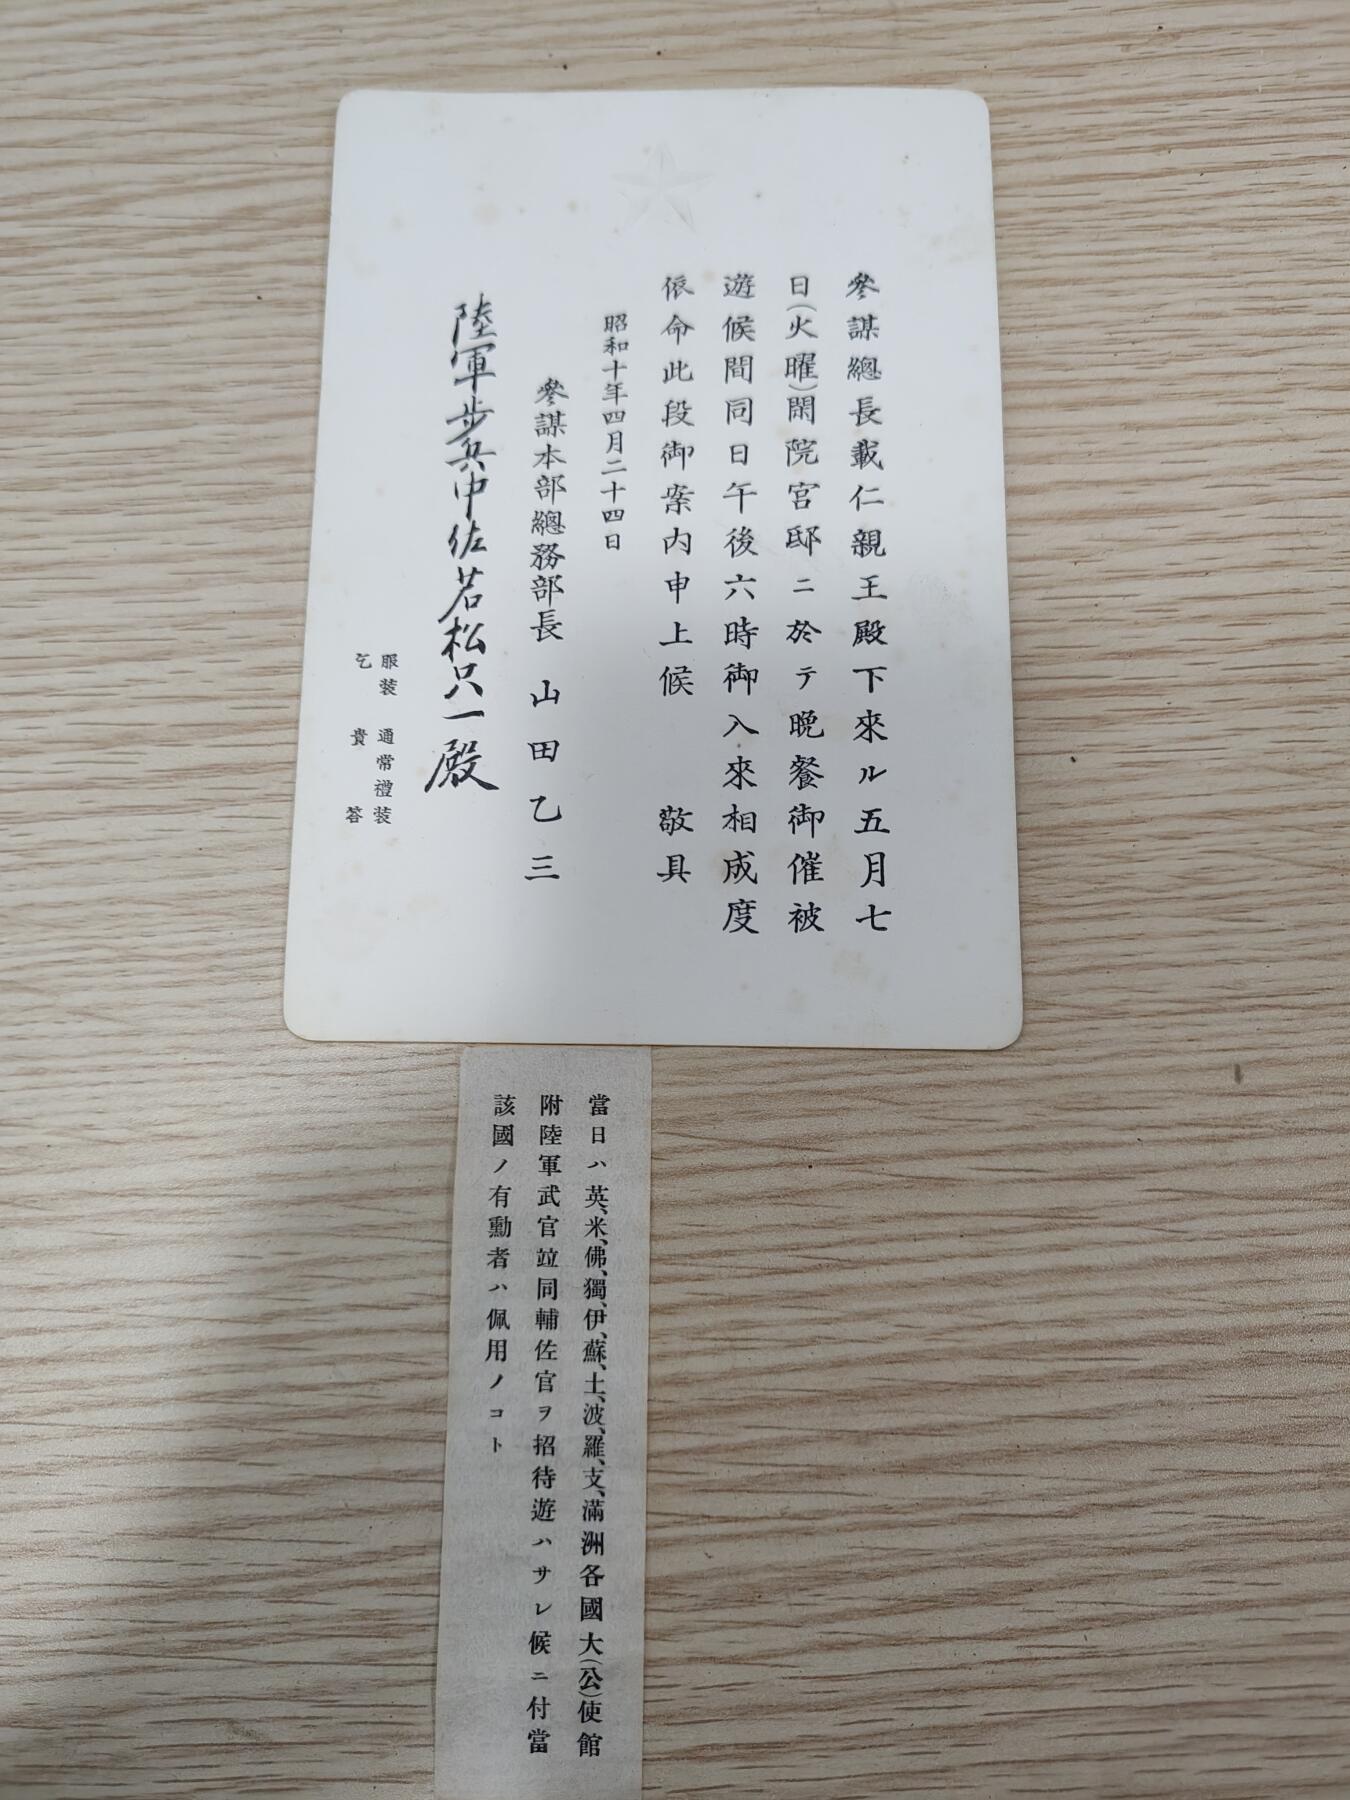 參謀總長載仁親王殿下來ル五月七
日(火曜)閑院宮邸ニ於テ晩餐御催被
遊候間同日午後六時御入來相成度
依命此段御案内申上候　敬具
昭和十年四月二十四日
參謀本部總務部長　山田乙三
陸軍步兵中佐若松只一殿
服装　通常禮装
乞　貴　答
當日ハ英、米、佛、獨、伊、蘇、土、波、羅、支、滿洲各國大(公)使館
附陸軍武官竝同輔佐官ヲ招待遊ハサレ候ニ付當
該國ノ有勳者ハ佩用ノコト